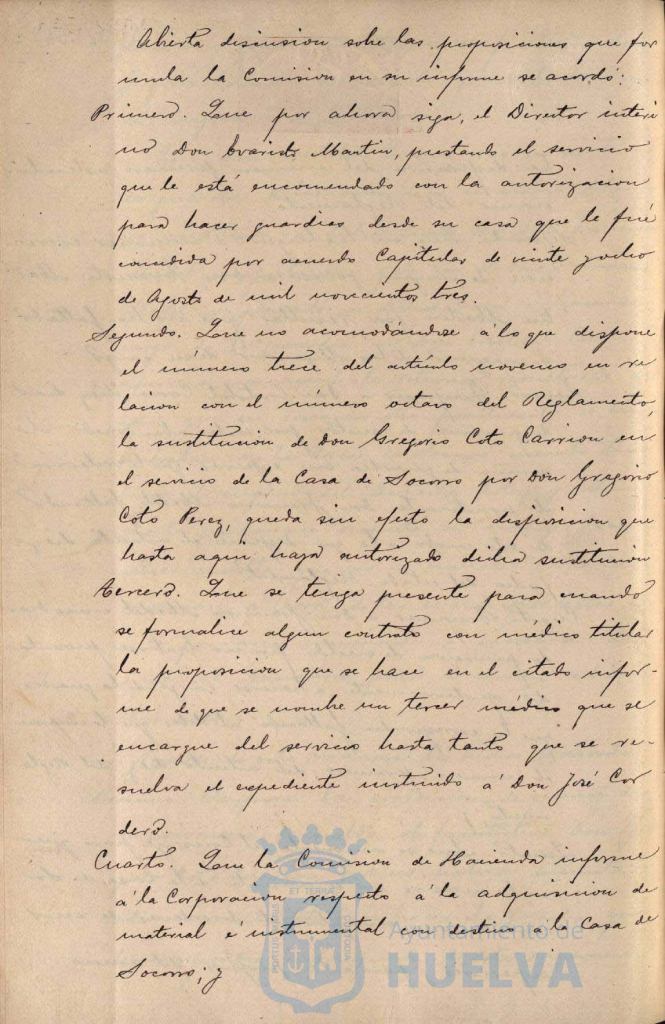 Abierta discusion sobre las proposiciones que for
mula la Comision en su informe se acordó:
Primero. Que por ahora siga, el Director interi
no Don Evaristo Martin, prestando el servicio
que le está encomendado con la autorizacion
para hacer guardias desde su casa que le fué
concedida por acuerdo Capitular de veinte y ocho
de Agosto de mil novecientos tres.
Segundo. Que no acomodándose á lo que dispone
el número trece del artículo noveno en re
lacion con el número octavo del Reglamento,
la sustitucion de Don Gregorio Coto Carrion en
el servicio de la Casa de Socorro por Don Gregorio
Coto Perez, queda sin efecto la disposicion que
hasta aqui haya autorizado dicha sustitucion
tercero. Que se tenga presente para cuando
se formalice algun contrato con médico titular
la proposicion que se hace en el citado infor-
me de que se nombre un tercer médico que se
encargue del servicio hasta tanto que se re-
suelva el expediente instruido á Don José Cor
dero.
Cuarto. Que la Comision de Hacienda informe
á la Corporacion respecto á la adquisicion de
material é instrumental con destino á la Casa de
Socorro; y
Ayuntamiento de
HUELVA